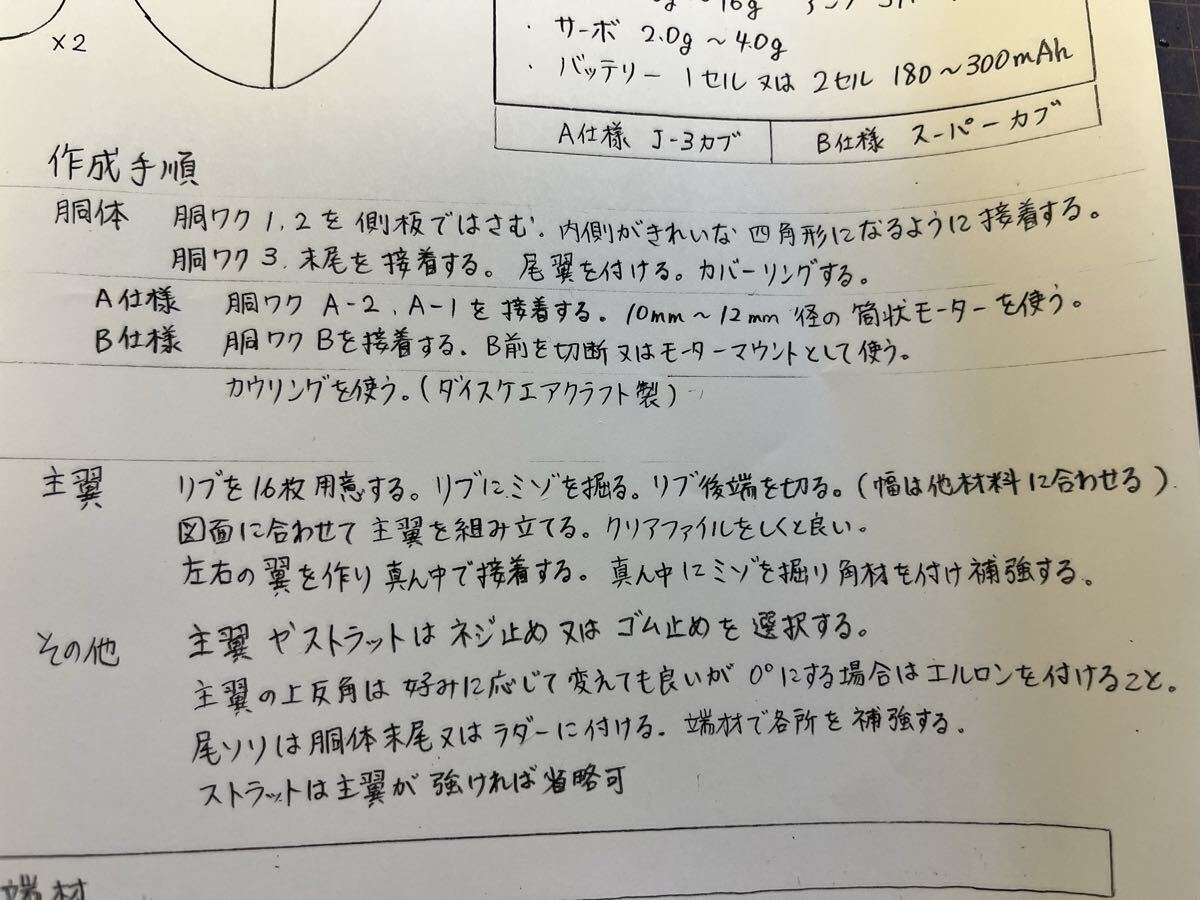 ×2
16g
・サーボ 2.0g～4.0g
・バッテリー 1セル又は2セル 180～300mAh
A仕様 J-3カブ
B仕様 スーパーカブ
作成手順
胴体 胴ワク1,2を側板ではさむ。内側がきれいな四角形になるように接着する。
胴ワク3、末尾を接着する。尾翼を付ける。カバーリングする。
A仕様 胴ワク A-2、A-1を接着する。10mm～12mm径の筒状モーターを使う。
B仕様 胴ワクBを接着する。B前を切断又はモーターマウントとして使う。
カウリングを使う。(ダイスケエアクラフト製)
主翼 リブを16枚用意する。リブにミゾを掘る。リブ後端を切る。(幅は他材料に合わせる)
図面に合わせて主翼を組み立てる。クリアファイルをしくと良い。
左右の翼を作り真ん中で接着する。真ん中にミゾを掘り角材を付け補強する。
その他 主翼やストラットはネジ止め又はゴム止めを選択する。
主翼の上反角は好みに応じて変えても良いが0°にする場合はエルロンを付けること。
尾ソリは胴体末尾又はラダーに付ける。端材で各所を補強する。
ストラットは主翼が強ければ省略可
端材